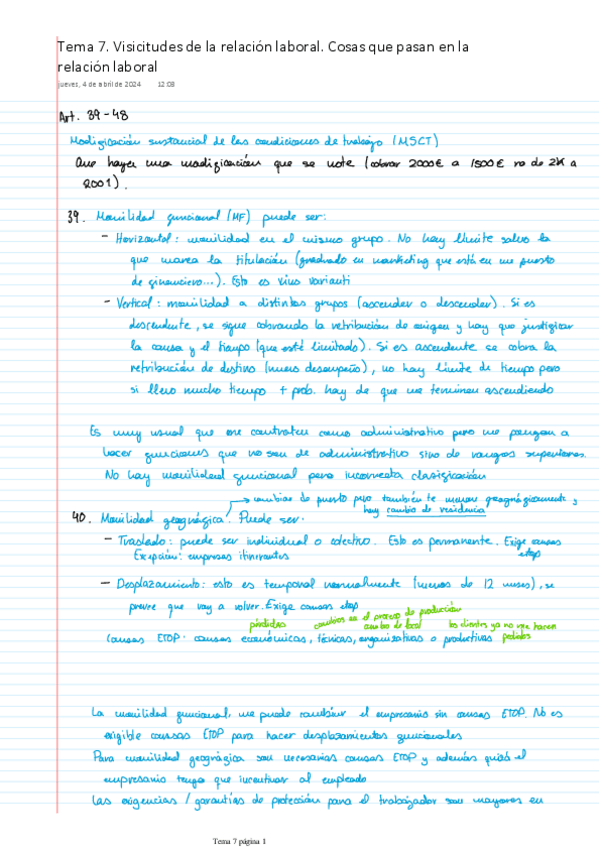 Tema 7. Visicitudes de la relación laboral. Cosas que pasan en la
relación laboral
jueves, 4 de abril de 2024 12:08
Art. 39-48
Modificación sustancial de las condiciones de trabajo (MSCT)
Que haya una modificación que se note (cobrar 2000€ a 1500€ no de 2K a
2001).
39. Movilidad funcional (MF) puede ser:
- Horizontal: movilidad en el mismo grupo. No hay límite salvo la
que marca la titulación (graduado en marketing que está en un puesto
de financiero...). Esto es
- Vertical: movilidad a distintos grupos (ascender o descender). Si es
descendente, se sigue cobrando la retribución de origen y hay que justificar
la causa y el tiempo (que esté limitado). Si es ascendente se cobra la
retribución de destino (nuevo desempeño), no hay límite de tiempo pero
si llevo mucho tiempo + prob. hay de que me terminen ascendiendo
Es muy usual que me contraten como administrativo pero me pongan a
hacer funciones que no son de administrativo sino de rangos superiores.
No hay movilidad funcional pero incorrecta clasificación
→ cambiar de puesto pero también te mueven geográficamente y
hay cambio de residencia
40. Movilidad geográfica. Puede ser:
- Traslado: puede ser individual o colectivo. Esto es permanente. Exige causas
etop
Excepción: empresas itinerantes
- Desplazamiento: esto es temporal normalmente (menos de 12 meses), se
prevee que voy a volver. Exige causas etop
pérdidas cambios en el proceso de producción
cambio de local los clientes ya no me hacen
Causas ETOP: causas económicas, técnicas, organizativas o productivas pedidos
La movilidad funcional, me puede cambiar el empresario sin causas ETOP. No es
exigible causas ETOP para hacer desplazamientos funcionales
Para movilidad geográfica son necesarias causas ETOP y además quizá el
empresario tenga que incentivar al empleado
Las exigencias / garantías de protección para el trabajador son mayores en
Tema 7 página 1